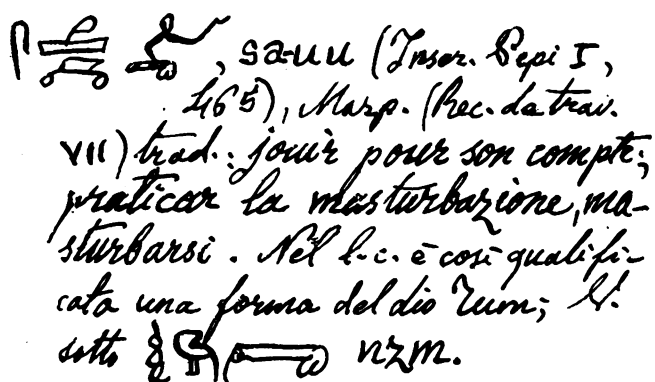 , sa-uu (Inscr. Pepi I,
465), Masp. (Rec. de trav.
VII) trad.: jouir pour son compte;
praticar la masturbazione, ma-
sturbarsi. Nel l. c. è così qualifi-
cata una forma del dio Tum; V.
sotto nzm.